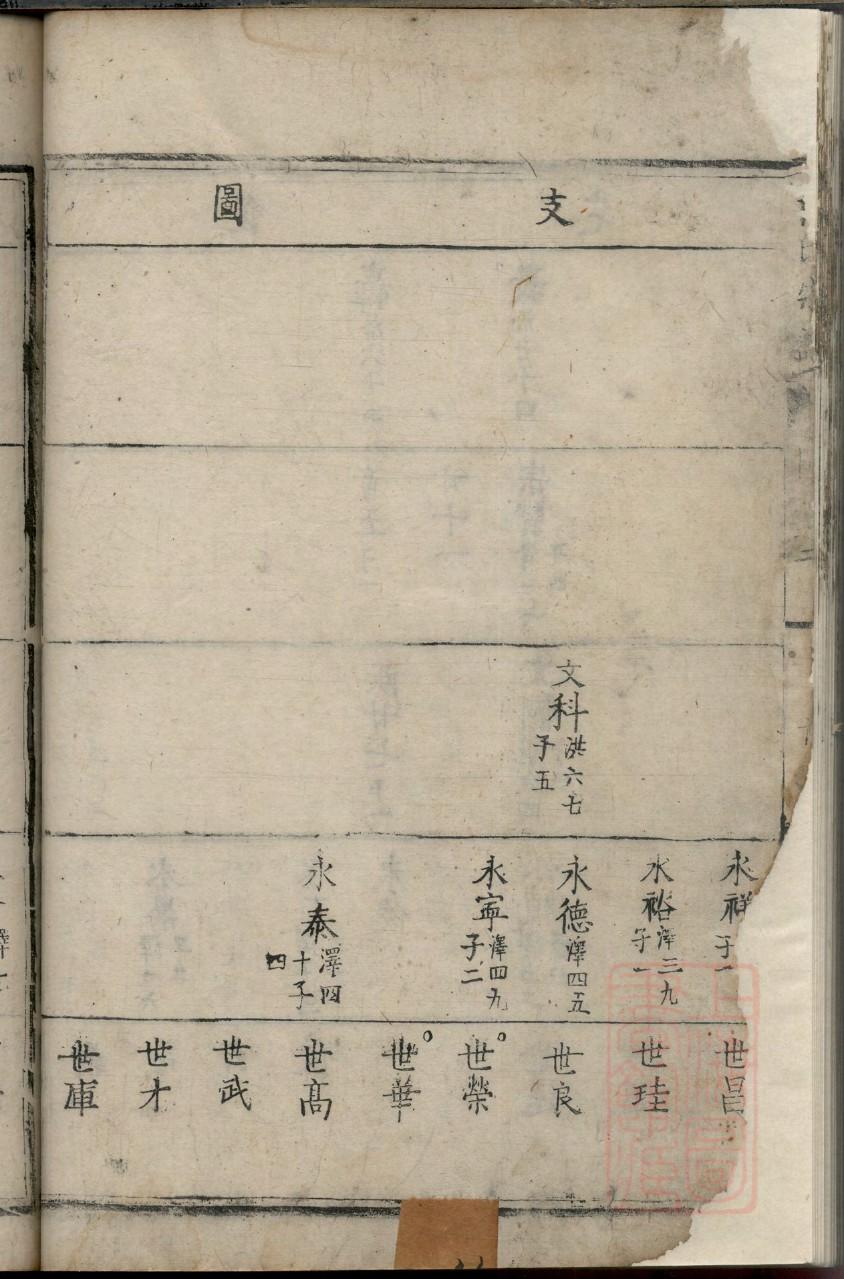 支
圖
文科 洪六七
子五
永祥 子一
永裕 澤三九
子一
永德 澤四五
永寧 澤四九
子二
永泰 澤四
十子
四
世昌
世珪
世良
世榮
世華
世高
世武
世才
世庫